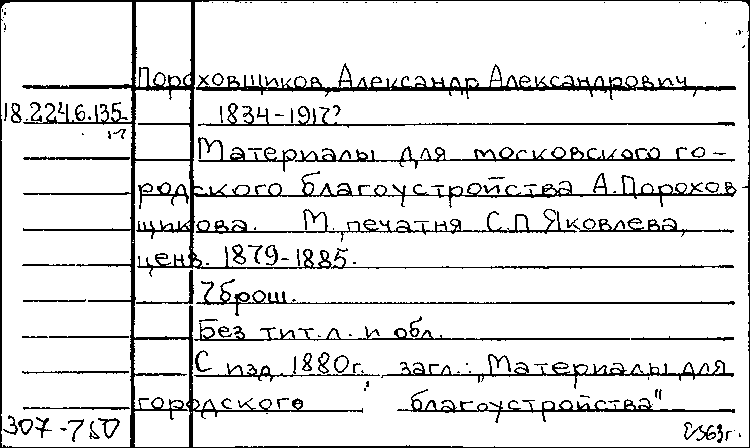 Пороховщиков, Александр Александрович,
18.224.6.135
1-7
1834-1917?
Материалы для московского го-
родского благоустройства А.Порохов-
щикова. М., печатня С.П. Яковлева,
ценз. 1879-1885.
7 брош.
Без тит.л. и обл.
С изд. 1880г. загл.: „Материалы для
городского благоустройства"
307-750